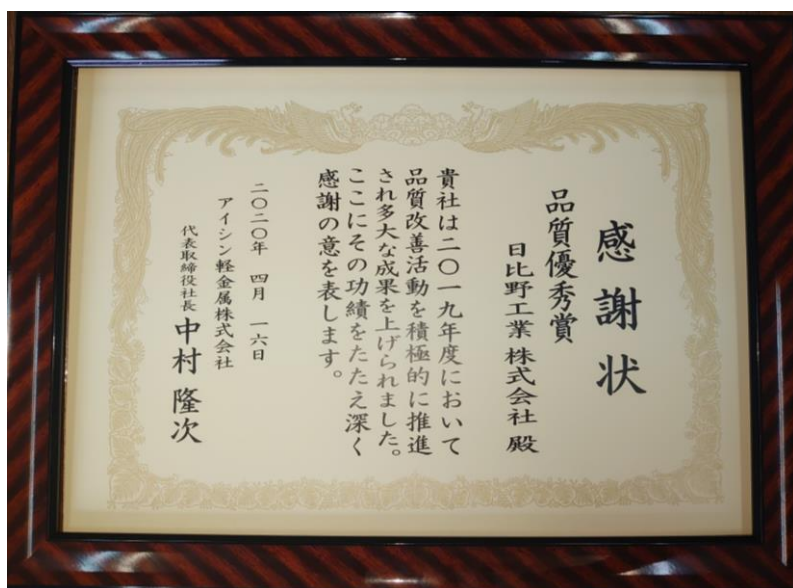 感謝状
品質優秀賞
日比野工業 株式会社 殿
貴社は二〇一九年度において
品質改善活動を積極的に推進
され多大な成果を上げられました。
ここにその功績をたたえ深く
感謝の意を表します。
二〇二〇年 四月 一六日
アイシン軽金属株式会社
代表取締役社長 中村 隆次